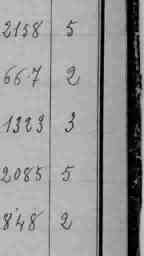 2158 5
667 2
1323 3
2085 5
848 2